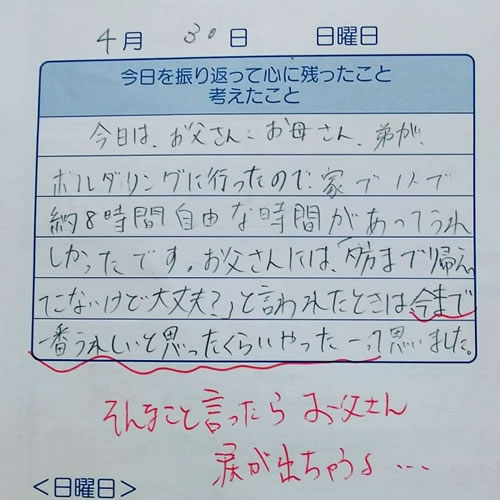 4月 30日 日曜日
今日を振り返って心に残ったこと
考えたこと
今日は、お父さんとお母さん、弟が、
ボルダリングに行ったので、家で1人で
約8時間自由な時間があってうれ
しかったです。お父さんには、「夕方まで帰え
てこないけど大丈夫?」と言われたときは、今まで
一番うれしいと思ったくらいやったーって思いました。
そんなこと言ったらお父さん
涙が出ちゃうよ…
<日曜日>